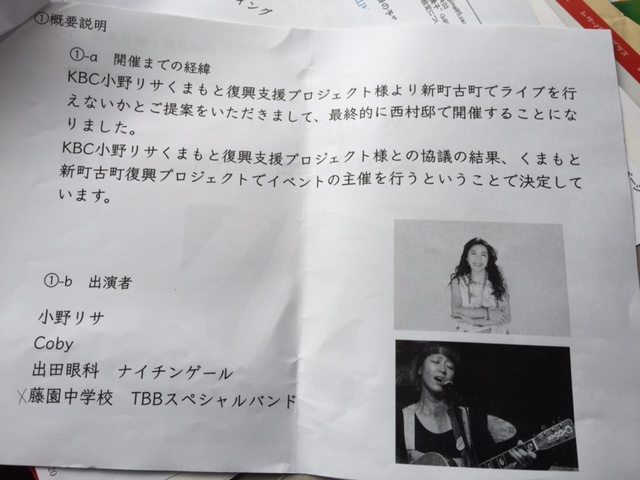 ィング
①概要説明
①-a　開催までの経緯
KBC小野リサくまもと復興支援プロジェクト様より新町古町でライブを行
えないかとご提案をいただきまして、最終的に西村邸で開催することにな
りました。
KBC小野リサくまもと復興支援プロジェクト様との協議の結果、くまもと
新町古町復興プロジェクトでイベントの主催を行うということで決定して
います。
①-b　出演者
小野リサ
Coby
出田眼科　ナイチンゲール
×藤園中学校　TBBスペシャルバンド